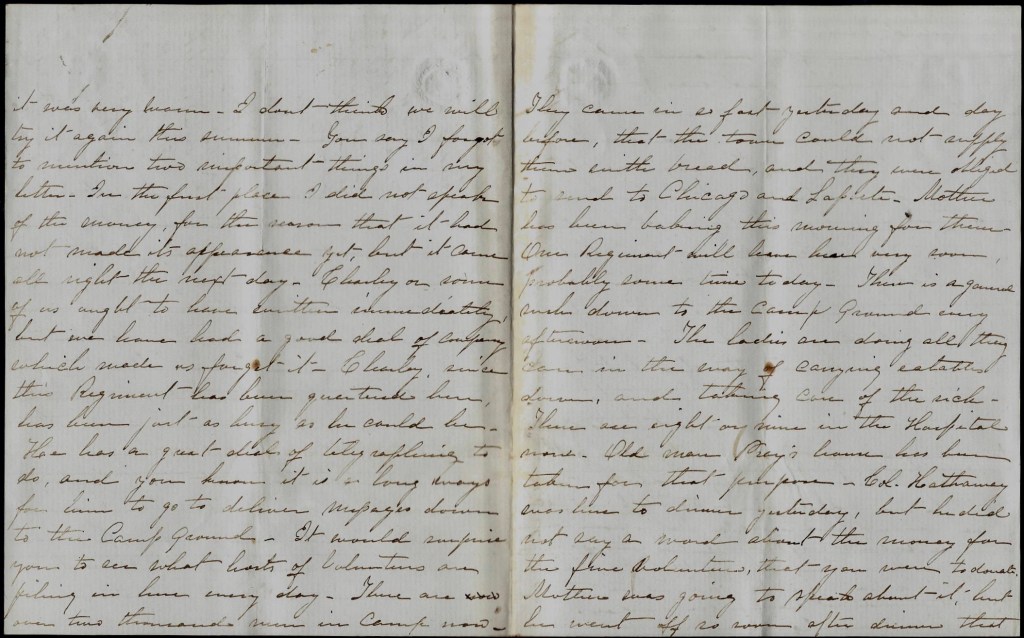 it was very warm - I dont think we will
try it again this summer - You say I forgot
to mention two important things in my
letter - In the first place I did not speak
of the money, for the reason that it had
not made its appearance yet, but it came
all right the next day - Charley or some
of us ought to have written immediately,
but we have had a good deal of company
which made us forget it - Charley, since
this Regiment has been quartered here,
has been just as busy as he could be -
Hee has a great deal of telegraphing to
do, and you know it is a long ways
for him to go to deliver messages down
to the Camp Ground - It would surprise
you to see what hosts of Volunteers are
piling in here every day - There are
over two thousand men in Camp now -
They came in so fast yesterday and day
before, that the town could not supply
them with bread, and they were obliged
to send to Chicago and Laporte - Mother
has been baking this morning for them -
One Regiment will leave here very soon,
probably some time to-day - There is a general
rush down to the Camp Ground every
afternoon - The ladies are doing all they
can in the way of carrying eatables
down, and taking care of the sick -
There are eight or nine in the Hospital
now - Old man Pray's house has been
taken for that purpose - Col. Hathaway
was here to dinner yesterday, but he did
not say a word about the money for
the five Volunteers, that you were to donate.
Mother was going to speak about it, but
he went off so soon after dinner that